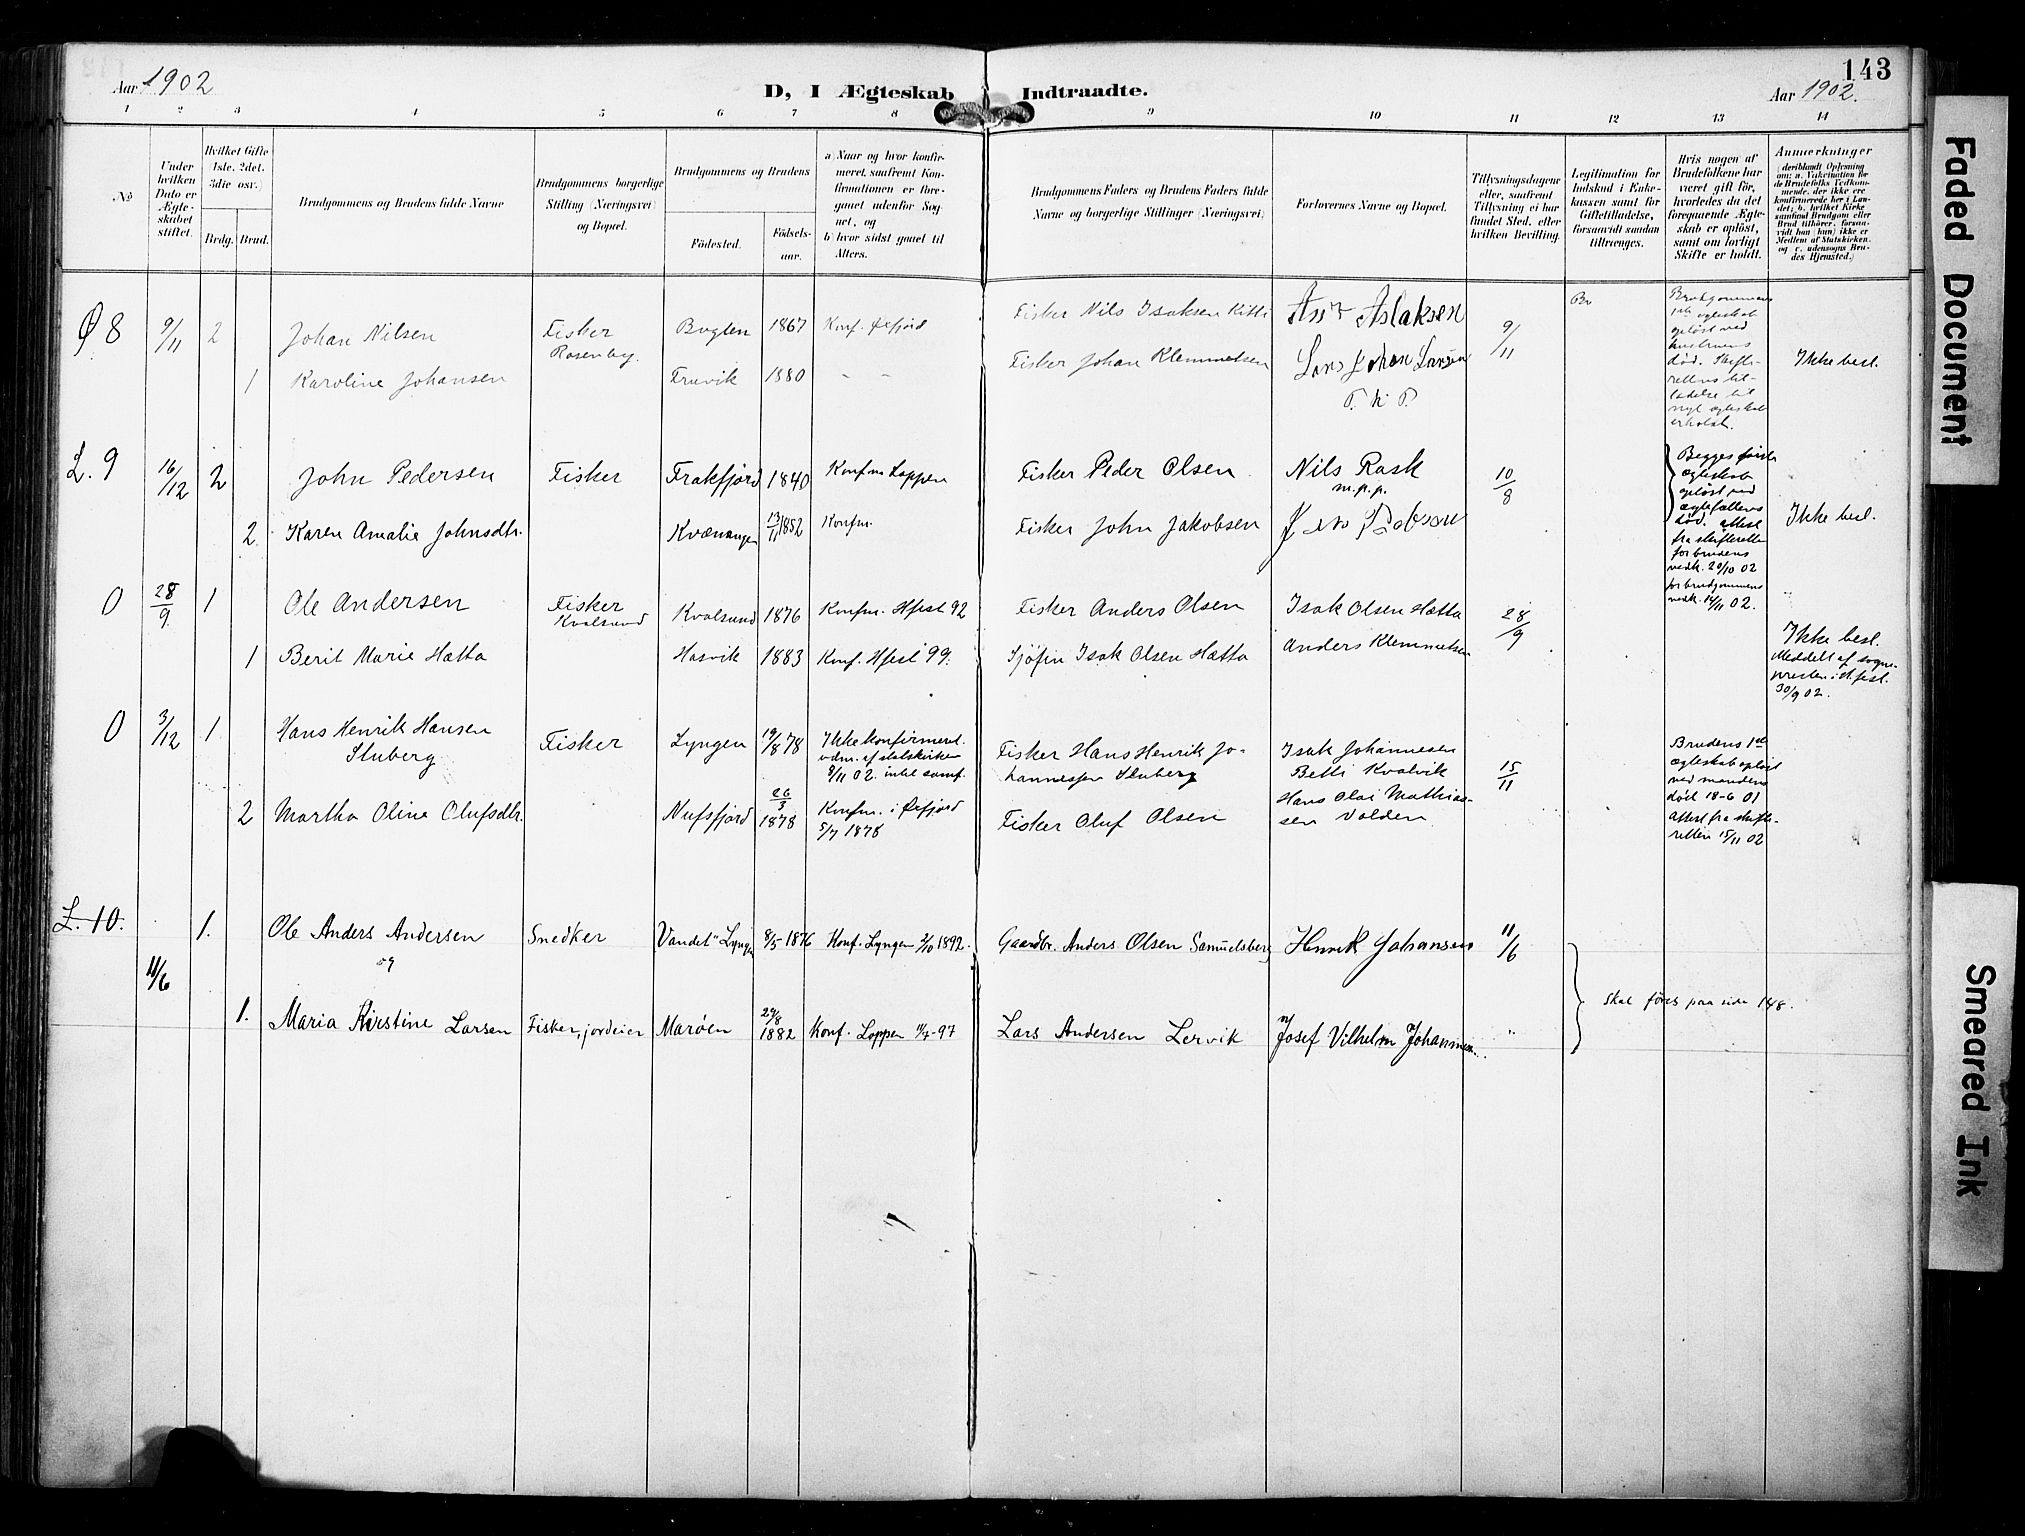 143
Aar 1902
D, I Ægteskab Indtraadte.
Aar 1902.
1 2 3 4 5 6 7 8 9 10 11 12 13 14
No
Under hvilken Dato er Ægteskabet stiftet.
Hvilket Gifte (1ste, 2det, 3die osv.)
Brdg. Brud.
Brudgommens og Brudens fulde Navne
Brudgommens borgerlige Stilling (Næringsvei) og Bopæl.
Brudgommens og Brudens
Fødested.
Fødselsaar.
a) Naar og hvor konfirmeret, saafremt Konfirmationen er foregaaet udenfor Sognet, og
b) hvor sidst gaaet til Alters.
Brudgommens Faders og Brudens Faders fulde Navne og borgerlige Stillinger (Næringsvei)
Forlovernes Navne og Bopæl.
Tillysningsdagene eller, saafremt Tillysning ei har fundet Sted, efter hvilken Bevilling.
Legitimation for Indskud i Enkekassen samt for Giftetilladelse, forsaavidt saadan tiltrænges.
Hvis nogen af Brudefolkene har været gift før, hvorledes da det foregaaende Ægteskab er opløst, samt om lovligt Skifte er holdt.
Anmærkninger (deriblandt Oplysning om: a. Vaksination for de Brudefolks Vedkommende, der ikke ere konfirmerede her i Landet; b. hvilket Kirkesamfund Brudgom eller Brud tilhører, forsaavidt han (hun) ikke er Medlem af Statskirken, og c. udensogns Brudes Hjemsted.)
Ø 8 9/11 2 Johan Nilsen Fisker Rosenberg. Buglen 1867 Konf. Øxfjord Fisker Nils Isaksen Kitti Aslaksen 9/11
Brudgommens 1ste ægteskab opløst ved hustruens død. Skifterettens tilladelse til nyt ægteskab erholdt.
1 Karoline Johansen Fruvik 1880 - - Fisker Johan Klemmetsen Lars Johan Larsen Ikke besl.
L. 9 16/12 2 John Pedersen Fisker Frakfjord 1840 Konfm Loppen Fisker Peder Olsen Nils Rask m.p.p. 10/8
Begges første ægteskab opløst ved ægtefællens død. attest fra skifteretten for brudens vedk. 20/10 02
for brudgommens vedk. 14/11 02.
2. Karen Amalie Johnsdtr. Kvænangen 13/11 1852 Konfm. Fisker John Jakobsen Ikke besl.
0 28/9. 1 Ole Andersen Fisker Kvalsund Kvalsund 1876 Konfm. Hfest 92 Fisker Anders Olsen Isak Olsen Hætta 28/9
1 Berit Marie Hætta Hasvik 1883 Konf. Hfest 99. Sjøfin Isak Olsen Hætta Anders Klemmetsen
Ikke besl. Meddelt af sognepresten i H.fest. 30/9 02.
0 3/12 1. Hans Henrik Hansen Stuberg Fisker Lyngen 19/8 78 Ikke konfirmeret. udm. af statskirken 9/11 02. intet samf. Fisker Hans Henrik Johannessen Stuberg Isak Johannesen Betti Kvalvik 15/11
Brudens 1ste ægteskab opløst ved mandens død 18-6 01 Attest fra skifteretten 15/11 02
2 Martha Oline Olufsdtr. Nufsfjord 26/3 1878 Konfm. i Øxfjord 5/7 1878 Fisker Oluf Olsen Hans Olai Mathiassen Volden
L. 10. 11/6 1. Ole Anders Andersen Snedker Vandet" Lyngen 8/5 1876 Konf. Lyngen 2/10 1892. Gaardbr. Anders Olsen Samuelsberg Henrik Johansen 11/6
og
1. Maria Kirstine Larsen Fisker, jordeier Marøen 29/8 1882 Konf. Loppen 11/7-97 Lars Andersen Lervik Josef Vilhelm Johannesen "
Skal føres paa side 148.
Faded Document
Smeared Ink